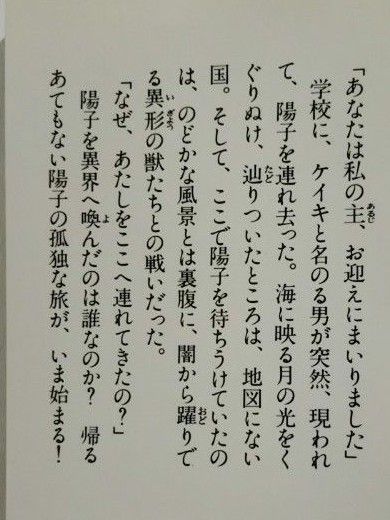 「あなたは私の主、お迎えにまいりました」
学校に、ケイキと名のる男が突然、現われ
て、陽子を連れ去った。海に映る月の光をく
ぐりぬけ、辿りついたところは、地図にない
国。そして、ここで陽子を待ちうけていたの
は、のどかな風景とは裏腹に、闇から躍りで
る異形の獣たちとの戦いだった。
「なぜ、あたしをここへ連れてきたの？」
陽子を異界へ喚んだのは誰なのか？　帰る
あてもない陽子の孤独な旅が、いま始まる！